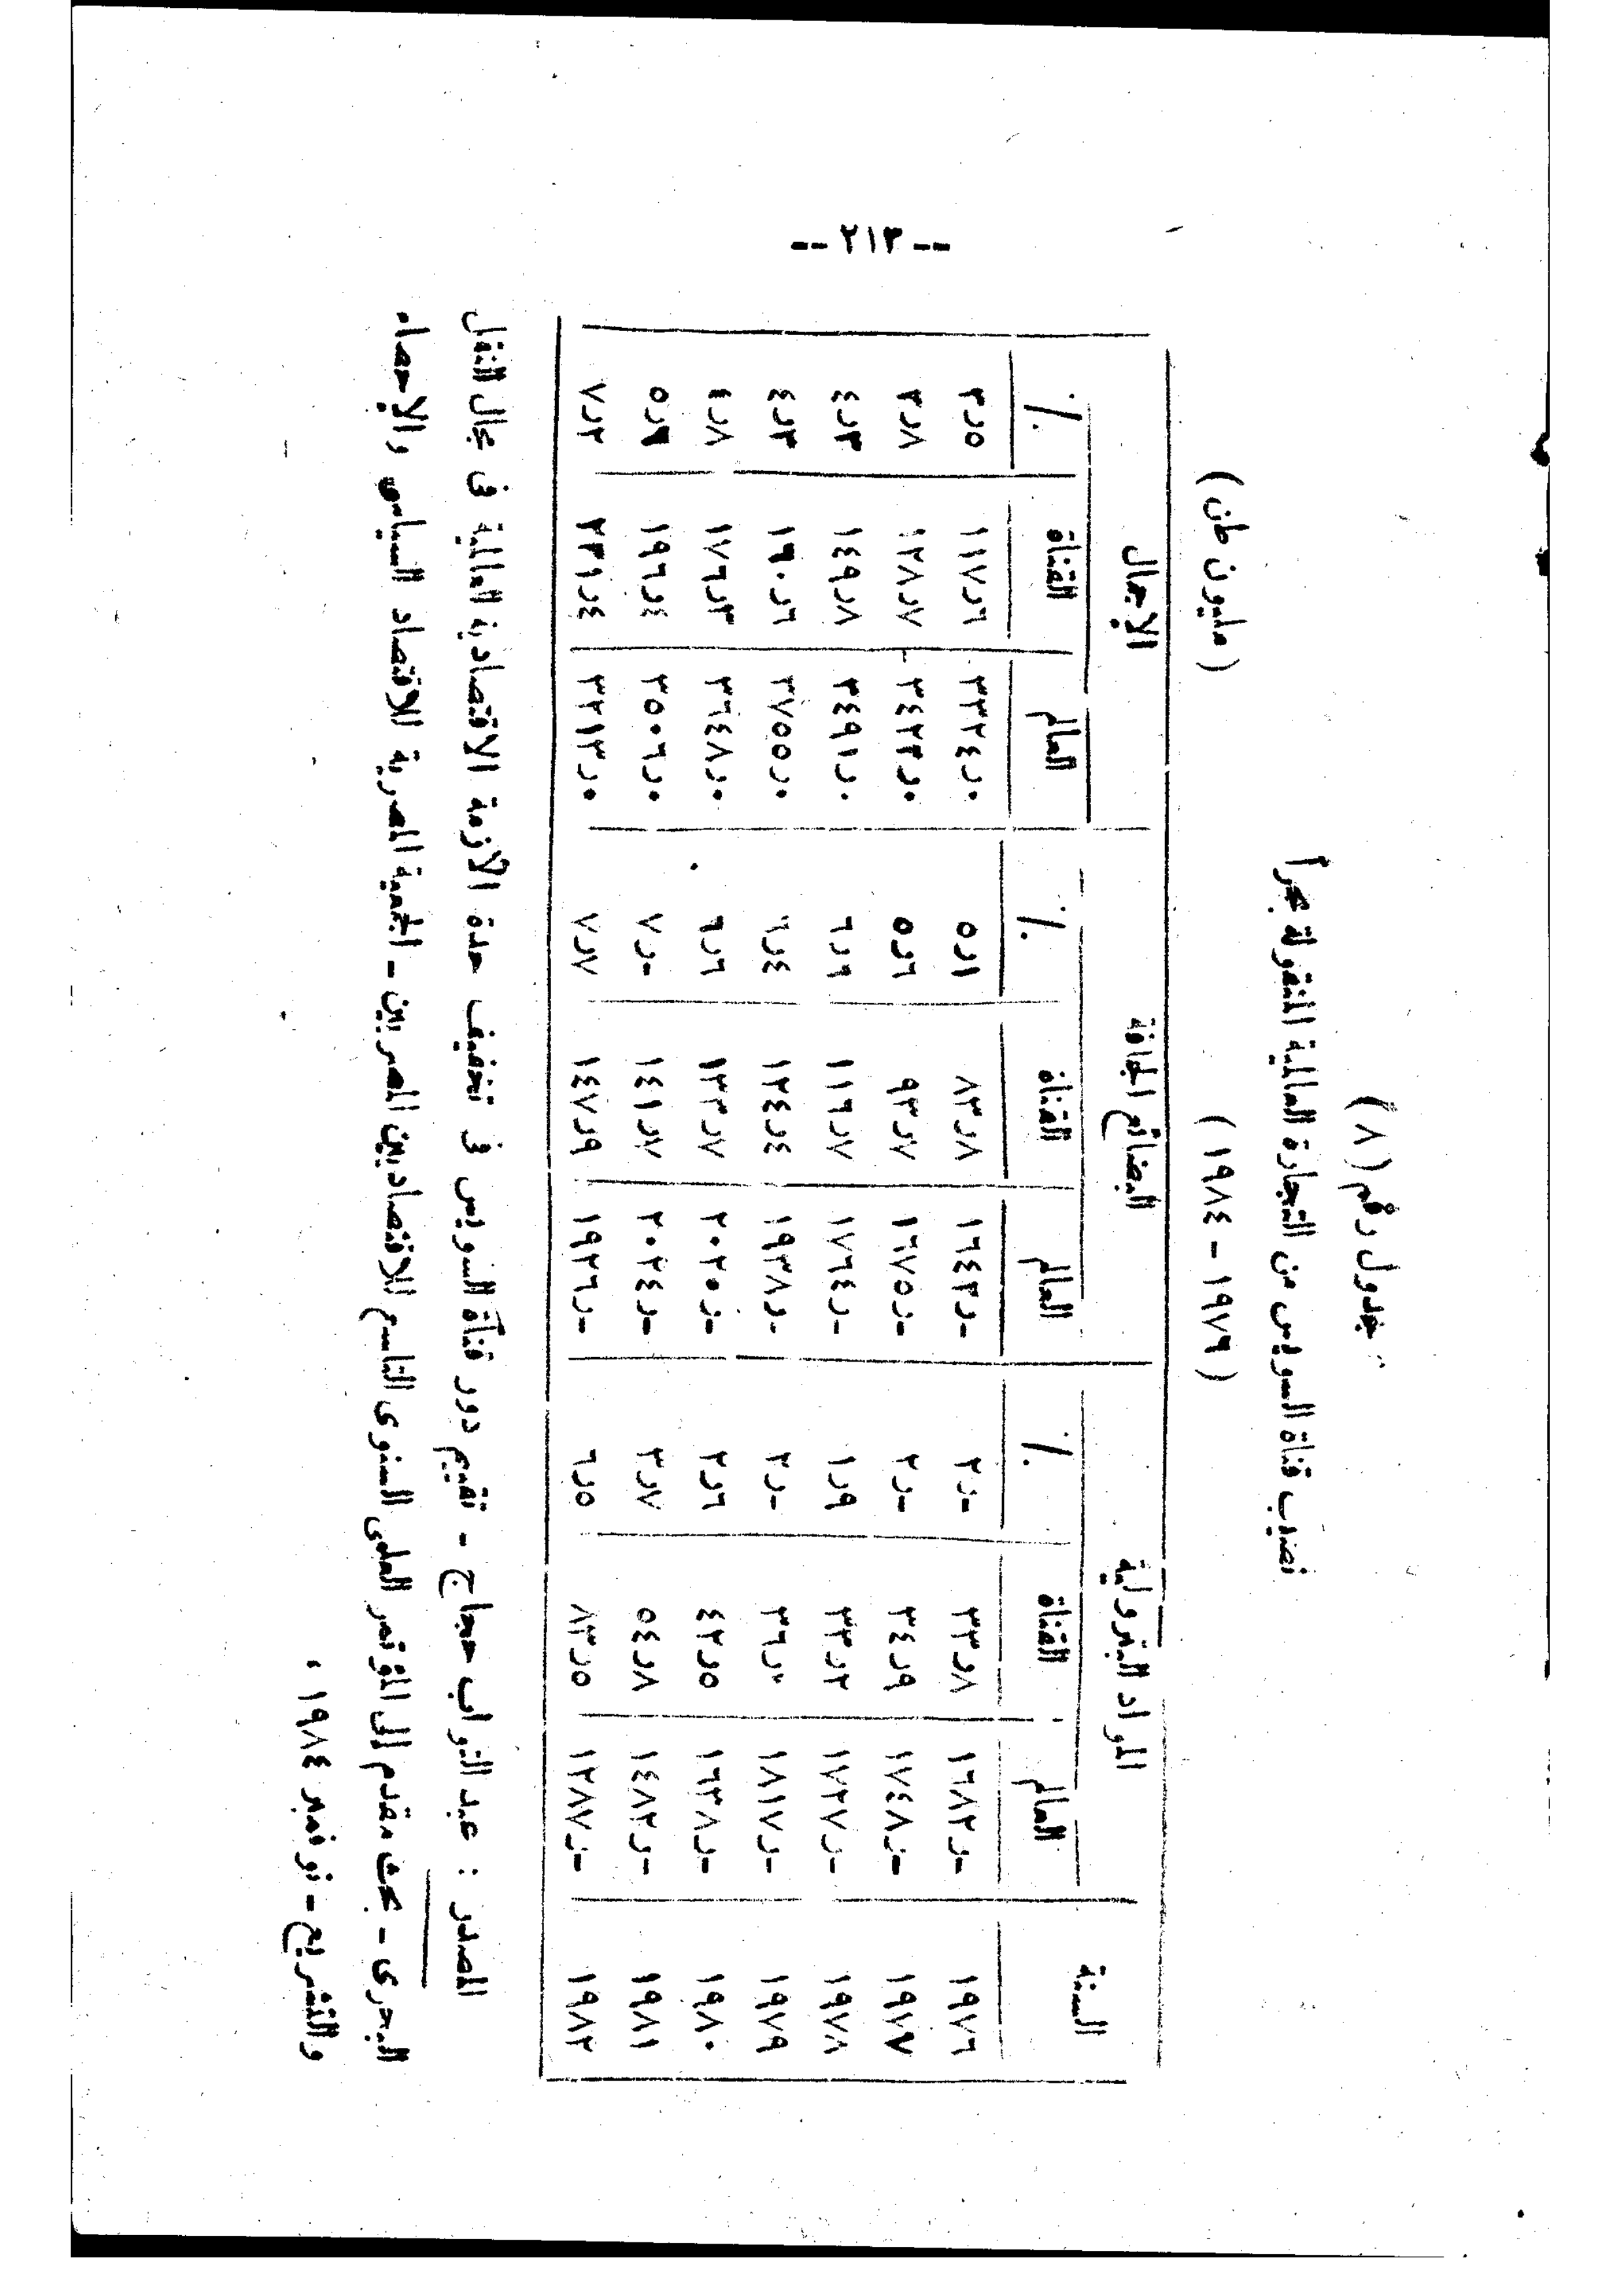 -- ٢١٣ --
جدول رقم (٨)
نصيب قناة السويس من التجارة العالمية المنقولة بحراً
(١٩٧٩ - ١٩٨٤) (مليون طن)
السنة المواد البترولية البضائع الجافة الإجمالى
العالم القناة ٪ العالم القناة ٪ العالم القناة ٪
١٩٧٦ ١٦٨٢ر- ٣٣ر٨ ٢ر- ١٦٤٢ر- ٨٣ر٨ ٥ر١ ٣٣٢٤ر٠ ١١٧ر٦ ٣ر٥
١٩٧٧ ١٧٤٨ر- ٣٤ر٩ ٢ر- ١٦٧٥ر- ٩٣ر٧ ٥ر٦ ٣٤٢٣ر٠ ١٢٨ر٧ ٣ر٨
١٩٧٨ ١٧٢٧ر- ٣٣ر٢ ١ر٩ ١٧٦٤ر- ١١٦ر٧ ٦ر٩ ٣٤٩١ر٠ ١٤٩ر٨ ٤ر٣
١٩٧٩ ١٨١٧ر- ٣٦ر- ٢ر- ١٩٣٨ر- ١٢٤ر٤ ٦ر٤ ٣٧٥٥ر٠ ١٦٠ر٦ ٤ر٣
١٩٨٠ ١٦٢٨ر- ٤٢ر٥ ٢ر٦ ٢٠٢٠ر- ١٣٣ر٧ ٦ر٦ ٣٦٤٨ر٠ ١٧٦ر٣ ٤ر٨
١٩٨١ ١٤٨٢ر- ٥٤ر٨ ٣ر٧ ٢٠٢٤ر- ١٤١ر٧ ٧ر- ٣٥٠٦ر٠ ١٩٦ر٤ ٥ر٦
١٩٨٢ ١٢٨٧ر- ٨٣ر٥ ٦ر٥ ١٩٢٦ر- ١٤٧ر٩ ٧ر٧ ٣٢١٣ر٠ ٢٣١ر٤ ٧ر٢
المصدر : عبد التواب حجاج - تقييم دور قناة السويس فى تخفيف حدة الأزمة الاقتصادية العالمية فى مجال النقل
البحرى - بحث مقدم إلى المؤتمر العلمى السنوى التاسع للاقتصاديين المصريين - الجمعية المصرية للاقتصاد السياسى والإحصاء
والتشريع - نوفمبر ١٩٨٤ ،